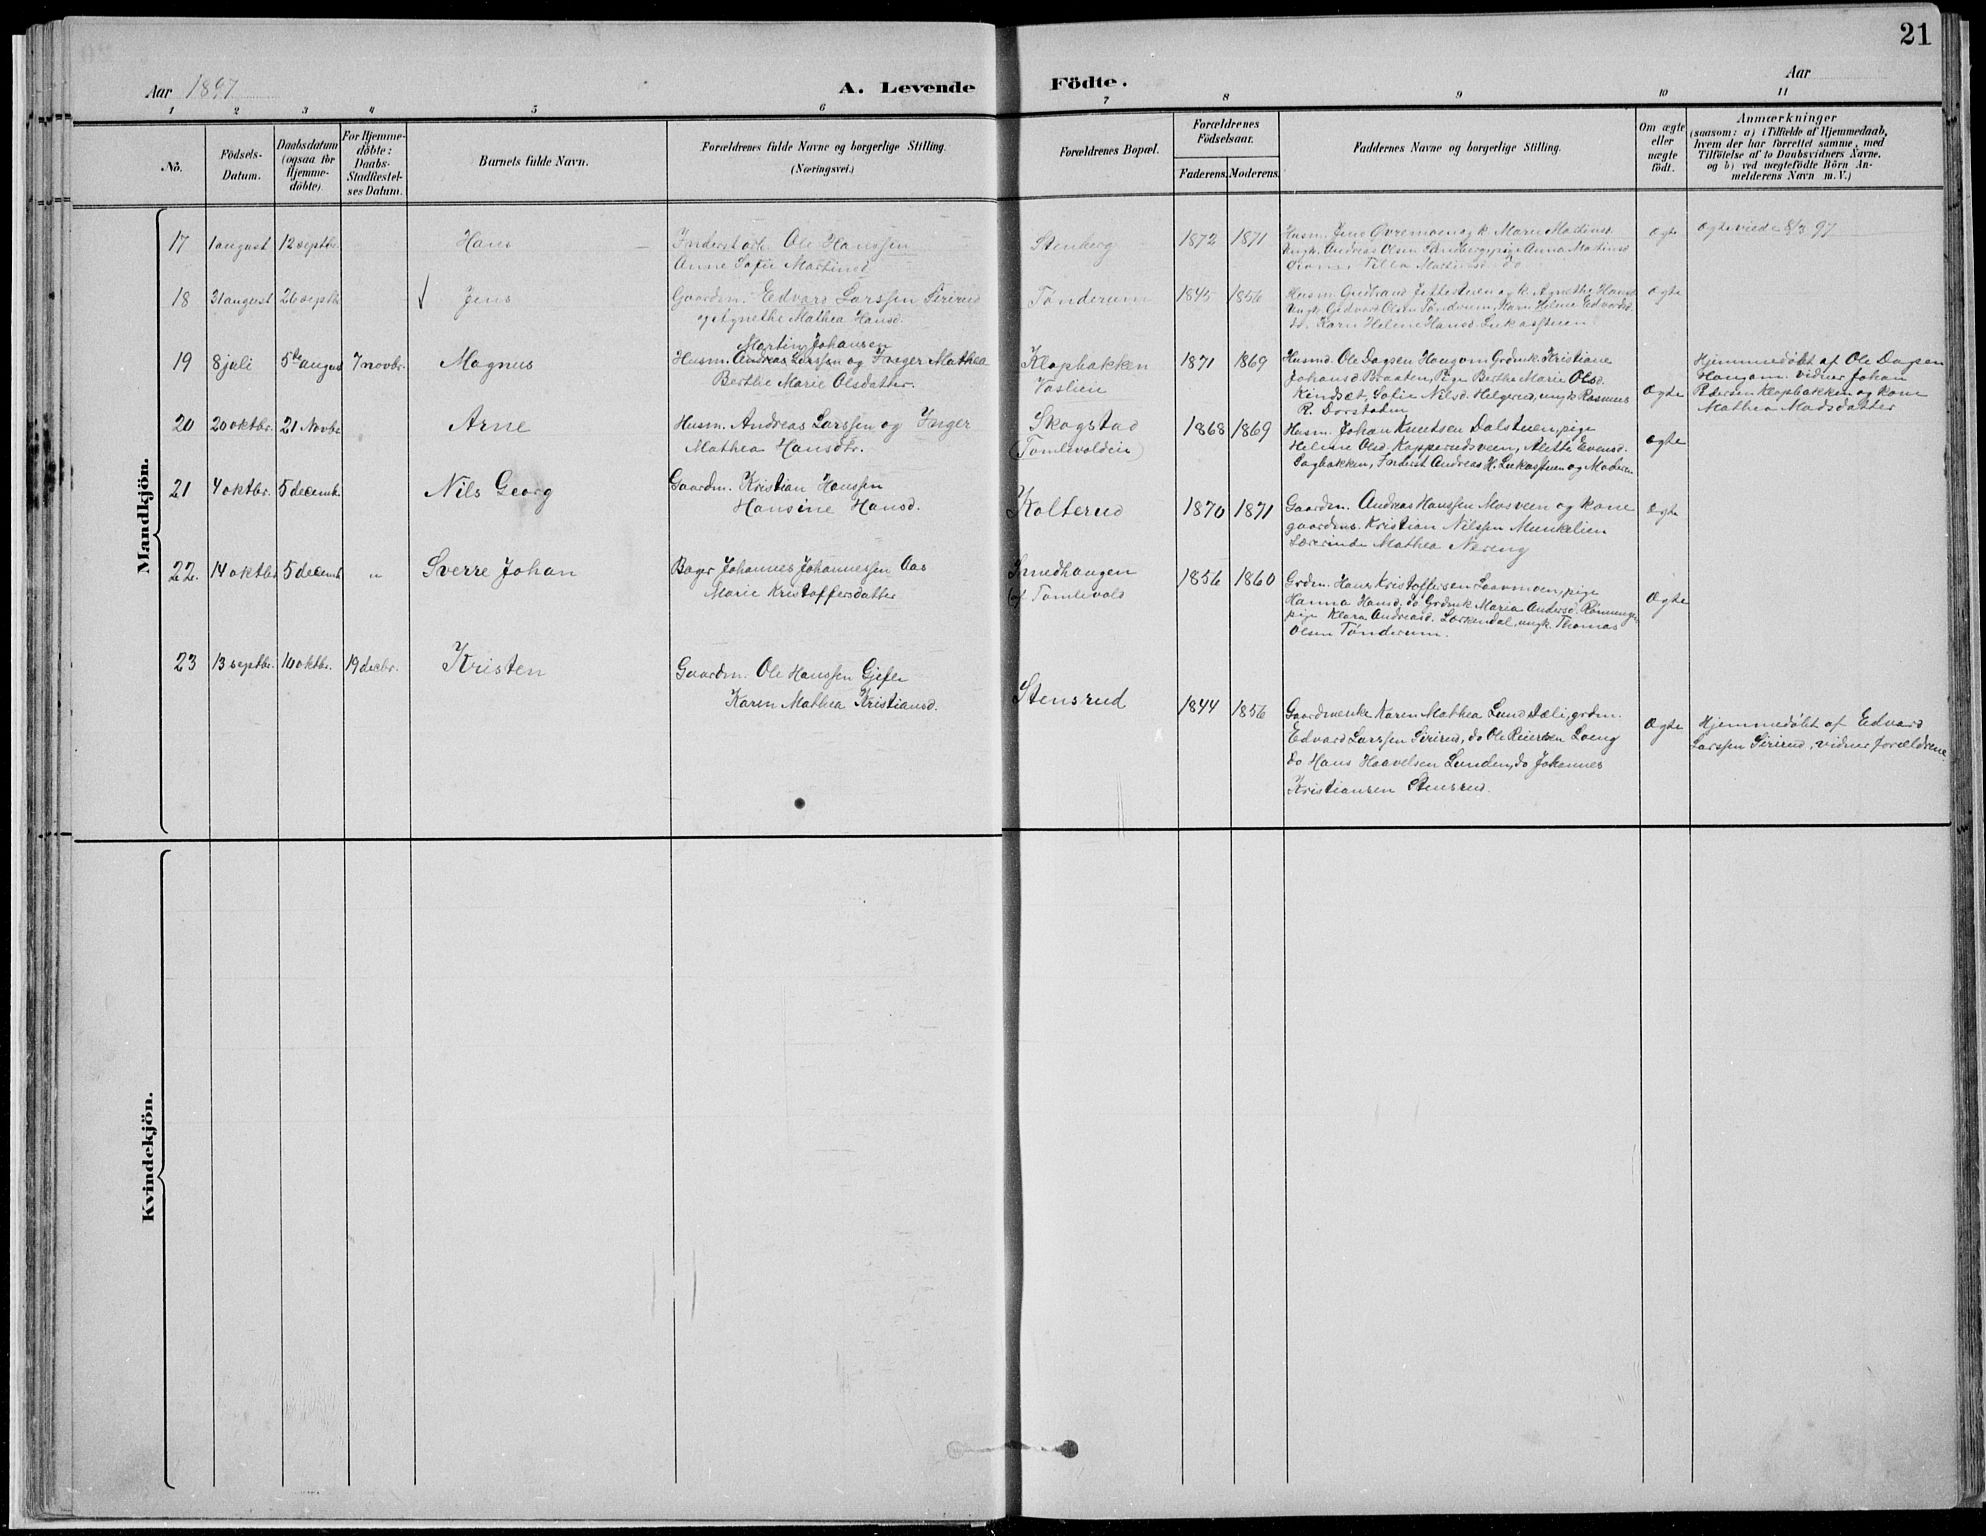 21
Aar 1897
A. Levende Födte.
Aar
1 2 3 4 5 6 7 8 9 10 11
No.
Födsels-
Datum.
Daabsdatum
(ogsaa for
Hjemme-
döbte)
For Hjemme-
döbte:
Daabs-
Stadfæstel-
ses Datum.
Barnets fulde Navn.
Forældrenes fulde Navne og borgerlige Stilling.
(Næringsvei.)
Forældrenes Bopæl.
Forældrenes
Födselsaar.
Faderens. Moderens.
Faddernes Navne og borgerlige Stilling.
Om ægte
eller
uægte
födt.
Anmærkninger
(saasom: a) i Tilfælde af Hjemmedaab,
hvem der har forrettet samme, med
Tilföielse af to Daabsvidners Navne,
og b) ved uægtefödte Börn An-
melderens Navn m. V.)
Mandkjön.
17 1 august 12 septbr. Hans
Inderst arb. Ole Hanssen
Anne Sofie Martinsd.
Stenberg
1872 1871
Husm. Jens Øvremoen og k Marie Martinsd.
Ungk. Andreas Olsen pige Anna Martinsd
Tilla Martinsd. do
Ægte
Ægteviede 8/3 97
18 31 august 26 septbr Jens
Gaardm. Edvard Larssen Sirirud
og Agnethe Mathea Hansd.
Tønderum
1845 1856
Husm. Gudbrand og k. Agnethe Hansd
Ungk. Edvard Olsen Tønderum, Karn Helene Edvardsd
do. Karn Helene Hansd. Lukasstuen
Ægte
19 8 juli 5te august 7 novbr. Magnus
Martin Johansen
Husm. Andreas Larssen og Inger Mathea
Berthe Marie Olsdatter.
Klopbakken
Vaslien
1871 1869
Husmd. Ole Dagsen Haugom Grdmk. Kristiane
Johansd Braaten, Pige Berthe Marie Olsd.
Kindsæt, Sofie Nilsd. Helgerud, ungk Rasmus
R. Dorstaden
Ægte
Hjemmedøbt af Ole Dagsen
Haugom. vidner Johan
Pedersen Klopbakken og kone
Mathea Madsdatter
20 20 oktbr. 21 Novbr Arne
Husm. Andreas Larssen og Inger
Mathea Hansdtr.
Skogstad
(Tomlevoldeie)
1868 1869
Husm. Johan Knutsen Dalstuen, pige
Helene Olsd. Kopperudsveen, Alette Evensd.
Sagbakken, Inderst Andreas H. Lukasstuen og Moderen
Ægte
21 4 oktbr. 5 decembr. Nils Georg
Gaardm. Kristian Hanssen
Hansine Hansd.
Kolterud
1870 1871
Gaardm. Andreas Hanssen Mosveen og kone
gaardm. Kristian Nilssen Munkelien
Lærerinde Mathea Nereng
Ægte
22. 14 oktbr 5 decemb " Sverre Johan
Bager Johannes Johannessen Aas
Marie Kristoffersdatter
Smedhaugen
af Tomlevold
1856 1860
Grdm. Hans Kristoffersen Laavmoen, pige
Hanna Hansd. do Grdmk Maria Andersd. Rønningen
pige Klara Andreasd. Lørkendal, ungk. Thomas
Olsen Tønderum.
Ægte
23 13 septbr. 10 oktbr. 19 decbr. Kristen
Gaardm. Ole Hanssen Gjefle
Karen Mathea Kristiansd.
Stensrud
1844 1856
Gaardmenke Karen Mathea Lund Dæli, grdm.
Edvard Larssen Sirirud, do Ole Reiersen Loeng
do Hans Haavelsen Lunden, do Johannes
Kristiansen Stensrud.
Ægte
Hjemmedøbt af Edvard
Larssen Sirirud, vidner forældrene
Kvindekjön.